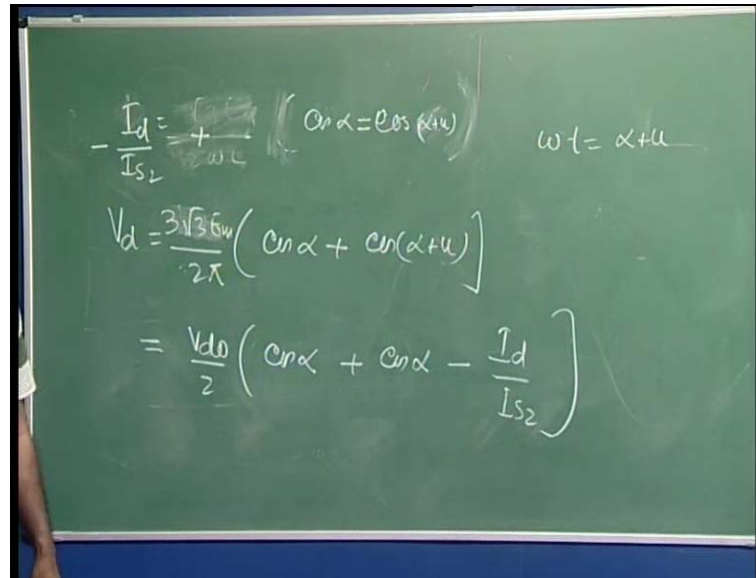 - I_d/I_{S2} = + (cos α = cos(α+u))
ωt = α+u
V_d = 3√3 E_m/2π (cos α + cos(α+u)]
= V_{do}/2 (cos α + cos α - I_d/I_{S2}]